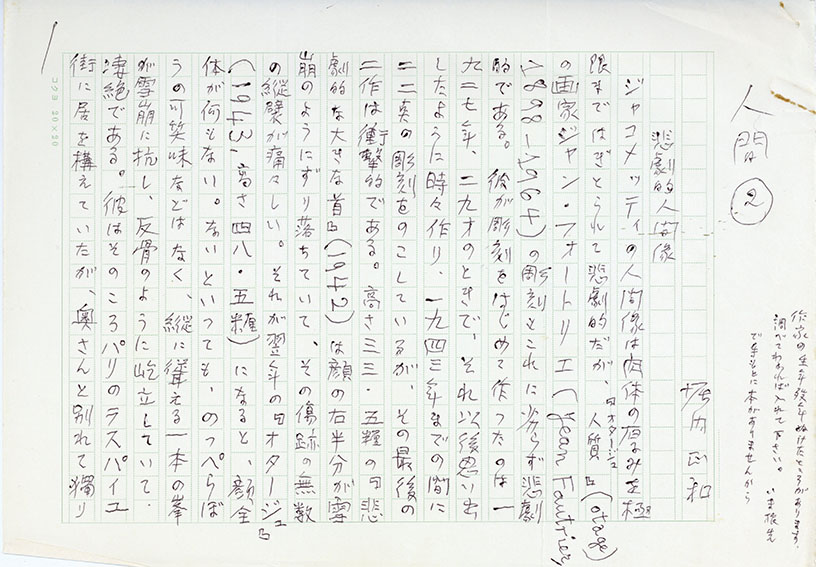 作家の生年歿年ぬけたところがあります。
調べてわかれば入れて下さい。いま旅先
で手もとに本がありませんから
人間 ②
悲劇的人間像
堀内正和
ジャコメッティの人間像は肉体の厚みを極
限まではぎとられて悲劇的だが、人質『オタージュ』(otage)
の画家ジャン・フォートリエ(Jean Fautrier,
1898−1964)の彫刻もこれに劣らず悲劇
的である。彼が彫刻をはじめて作ったのは一
九二七年、二九才のときで、それ以後思い出
したように時々作り、一九四三年までの間に
二二点の彫刻をのこしているが、その最後の
二作は衝撃的である。高さ三三・五糎の『悲
劇的な大きな首』(1942)は顔の右半分が雪
崩のようにずり落ちていて、その傷跡の無数
の縦襞が痛々しい。それが翌年の『オタージュ』
(1943,高さ四八・五糎)になると、顔全
体が何もない。ないといっても、のっぺらぼ
うの可笑味などはなく、縦に聳える一本の峯
が雪崩に抗し、反骨のように屹立していて、
凄絶である。彼はそのころパリのラスパイユ
街に居を構えていたが、奥さんと別れて独り
コクヨ 20×20